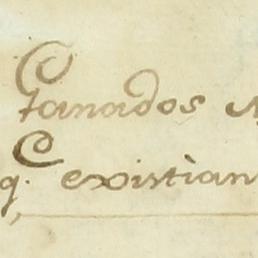 tanados
q.^e existian